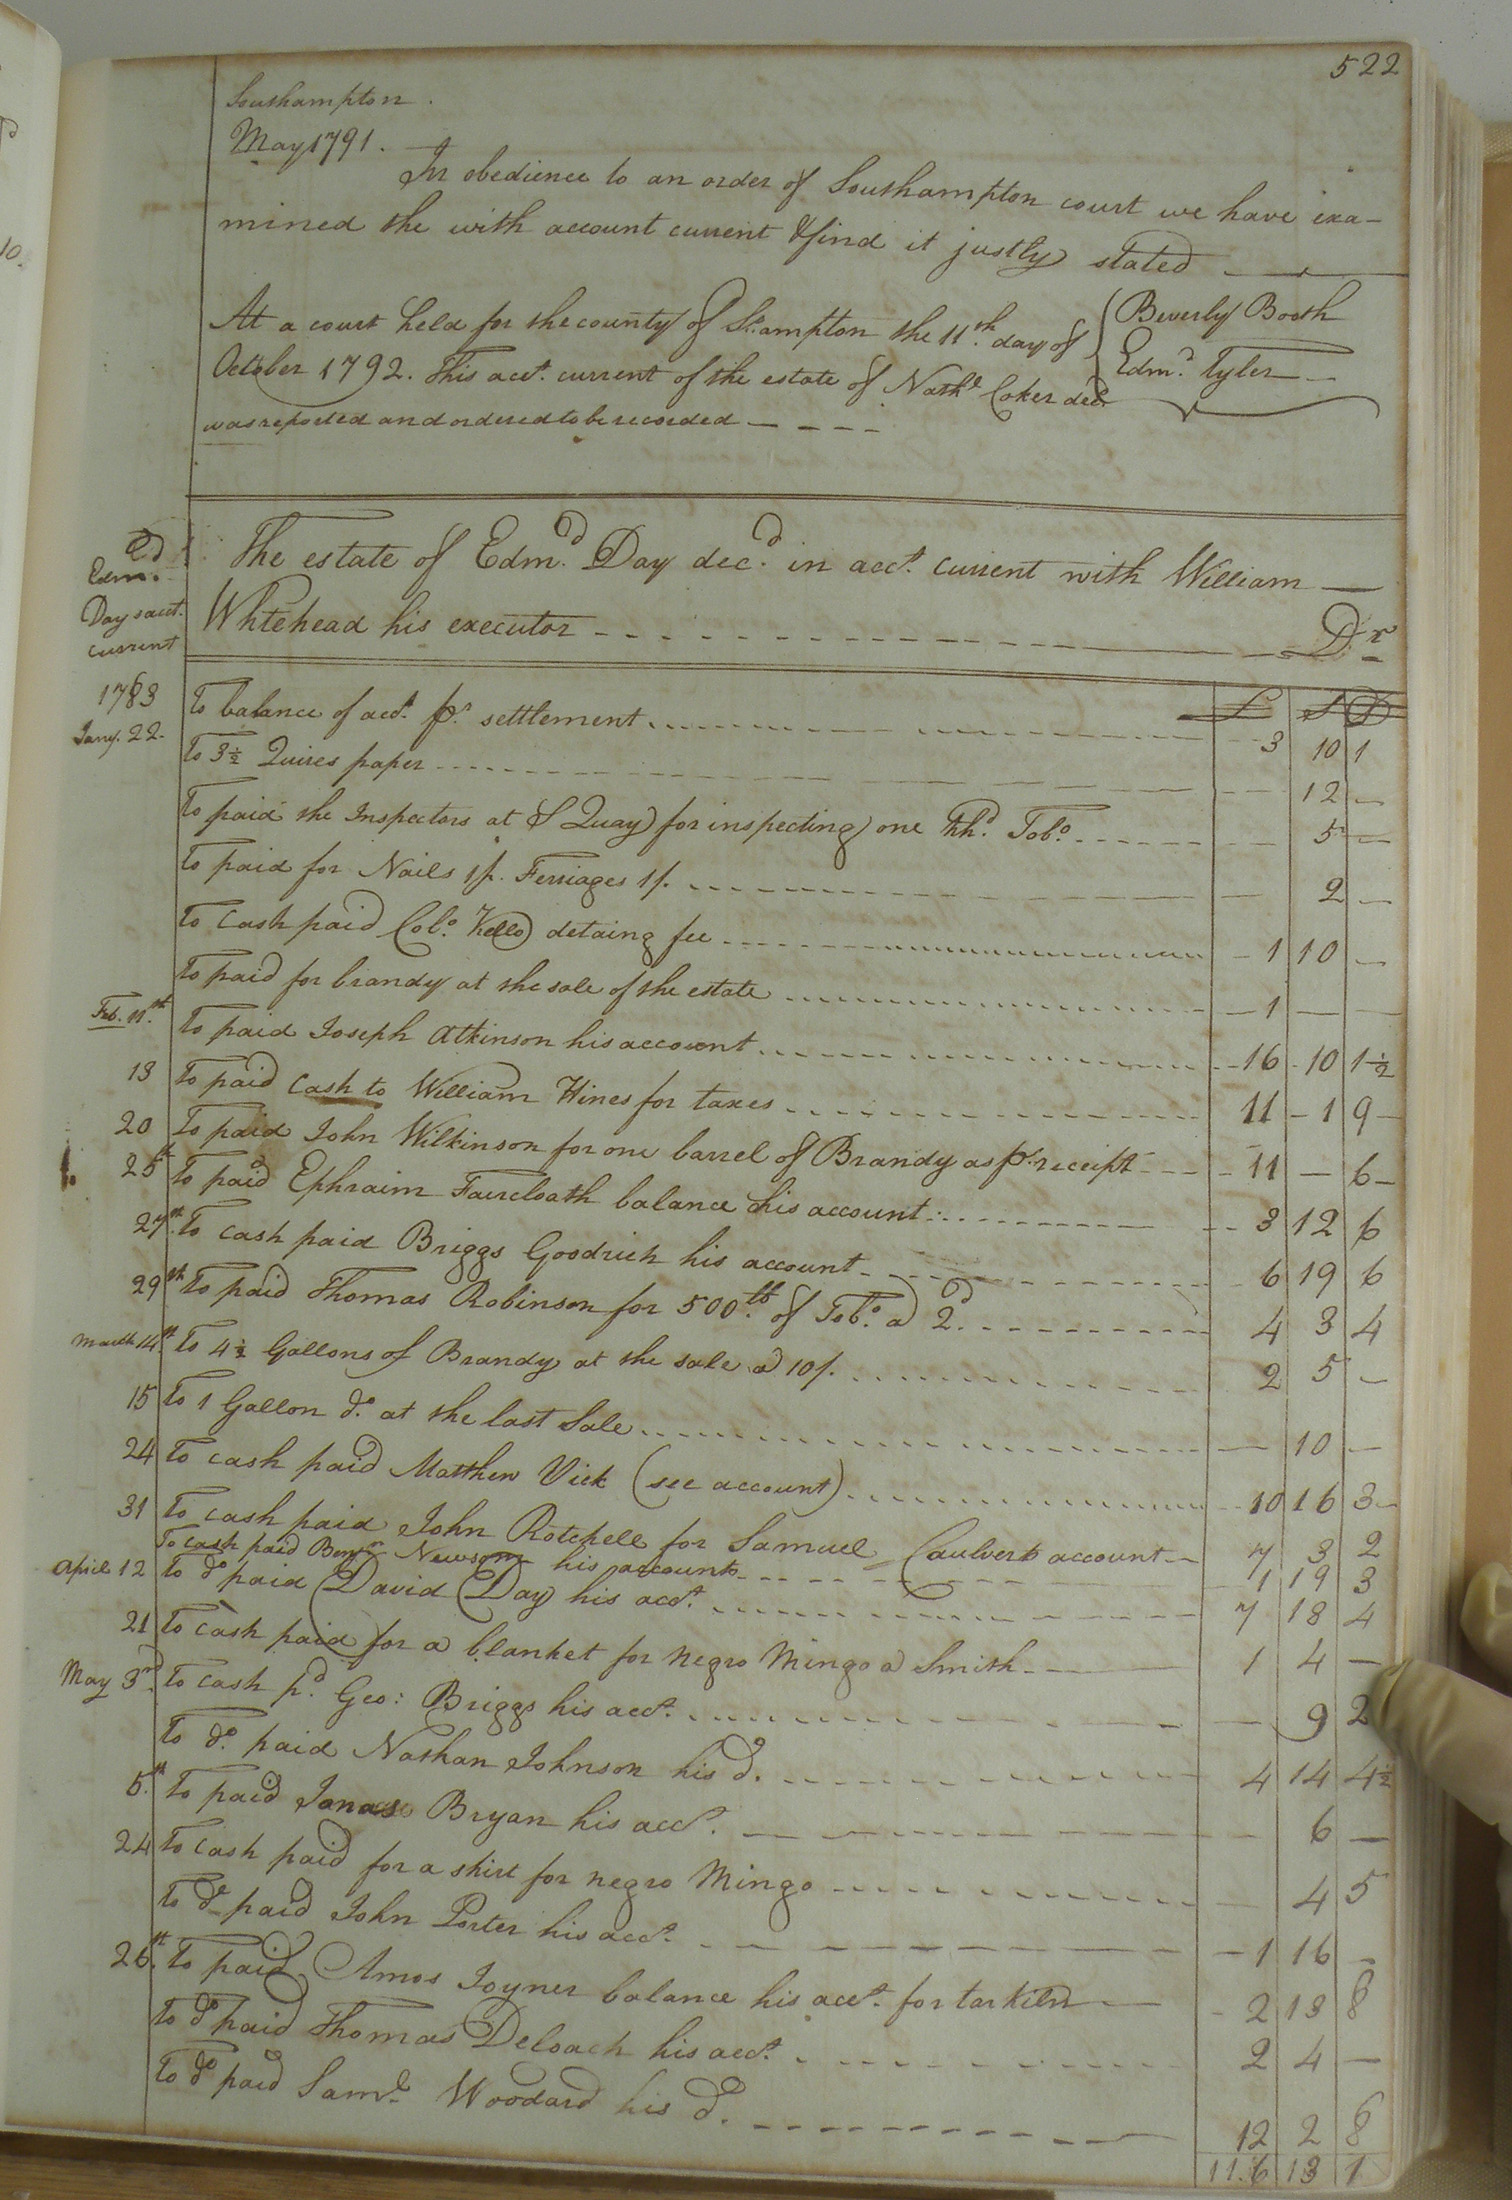 522
Southampton.
May 1791.
In obedience to an order of Southampton court we have exa-
mined the with account current & find it justly stated
Beverly Booth
Edmd. Tyler
At a court held for the county of So:ampton the 11th. day of
October 1792. This acct. current of the estate of Nathl. Coker decd.
was reported and ordered to be recorded
Edmd.
Days acct.
current
The estate of Edmd. Day decd. in acct. current with William
Whtehead his executor Dr
£ S D
1783 To balance of acct. pr. settlement 3 10 1
Jany. 22. To 3½ Quires paper 12 —
To paid the Inspectors at S Quay for inspecting one hhd. Tobo. 5 —
To paid for Nails 1/. Ferriages 1/. 2 —
To Cash paid Colo. Kello detaing fee 1 10 —
To paid for brandy at the sale of the estate 1 — —
Feb. 11th. To paid Joseph Atkinson his account 16 10 1½
13 To paid Cash to William Hines for taxes 11 1 9
20 To paid John Wilkinson for one barrel of Brandy as pr. receipt 11 — 6
25th To paid Ephraim Faircloath balance his account 3 12 6
27th. To cash paid Briggs Goodrich his account 6 19 6
29th To paid Thomas Robinson for 500lb. of Tobo. a 2d. 4 3 4
March 14th To 4½ Gallons of Brandy at the sale a 10/. 2 5 —
15 To 1 Gallon do. at the last Sale — 10 —
24 To cash paid Matthew Vick (see account) 10 16 3
31 To cash paid John Rotchell for Samuel Caulvert account 7 3 2
To cash paid Benjn. Newsom his account 1 19 3
April 12 To do paid David Day his acct. 7 18 4
21 To cash paid for a blanket for negro Mingo a Smith 1 4 —
May 3rd. To cash pd. Geo: Briggs his acct. — 9 2
To do. paid Nathan Johnson his do. 4 14 4½
5.th To paid Jonas Bryan his acct. — 6 —
24 To cash paid for a shirt for negro Mingo — 4 5
To do paid John Porter his acct. 1 16 —
26.th To paid Amos Joyner balance his acct. for tar kiln 2 13 8
To do paid Thomas Deloach his acct. 2 4 —
To do paid Saml. Woodard his do. 12 2 8
116 13 1